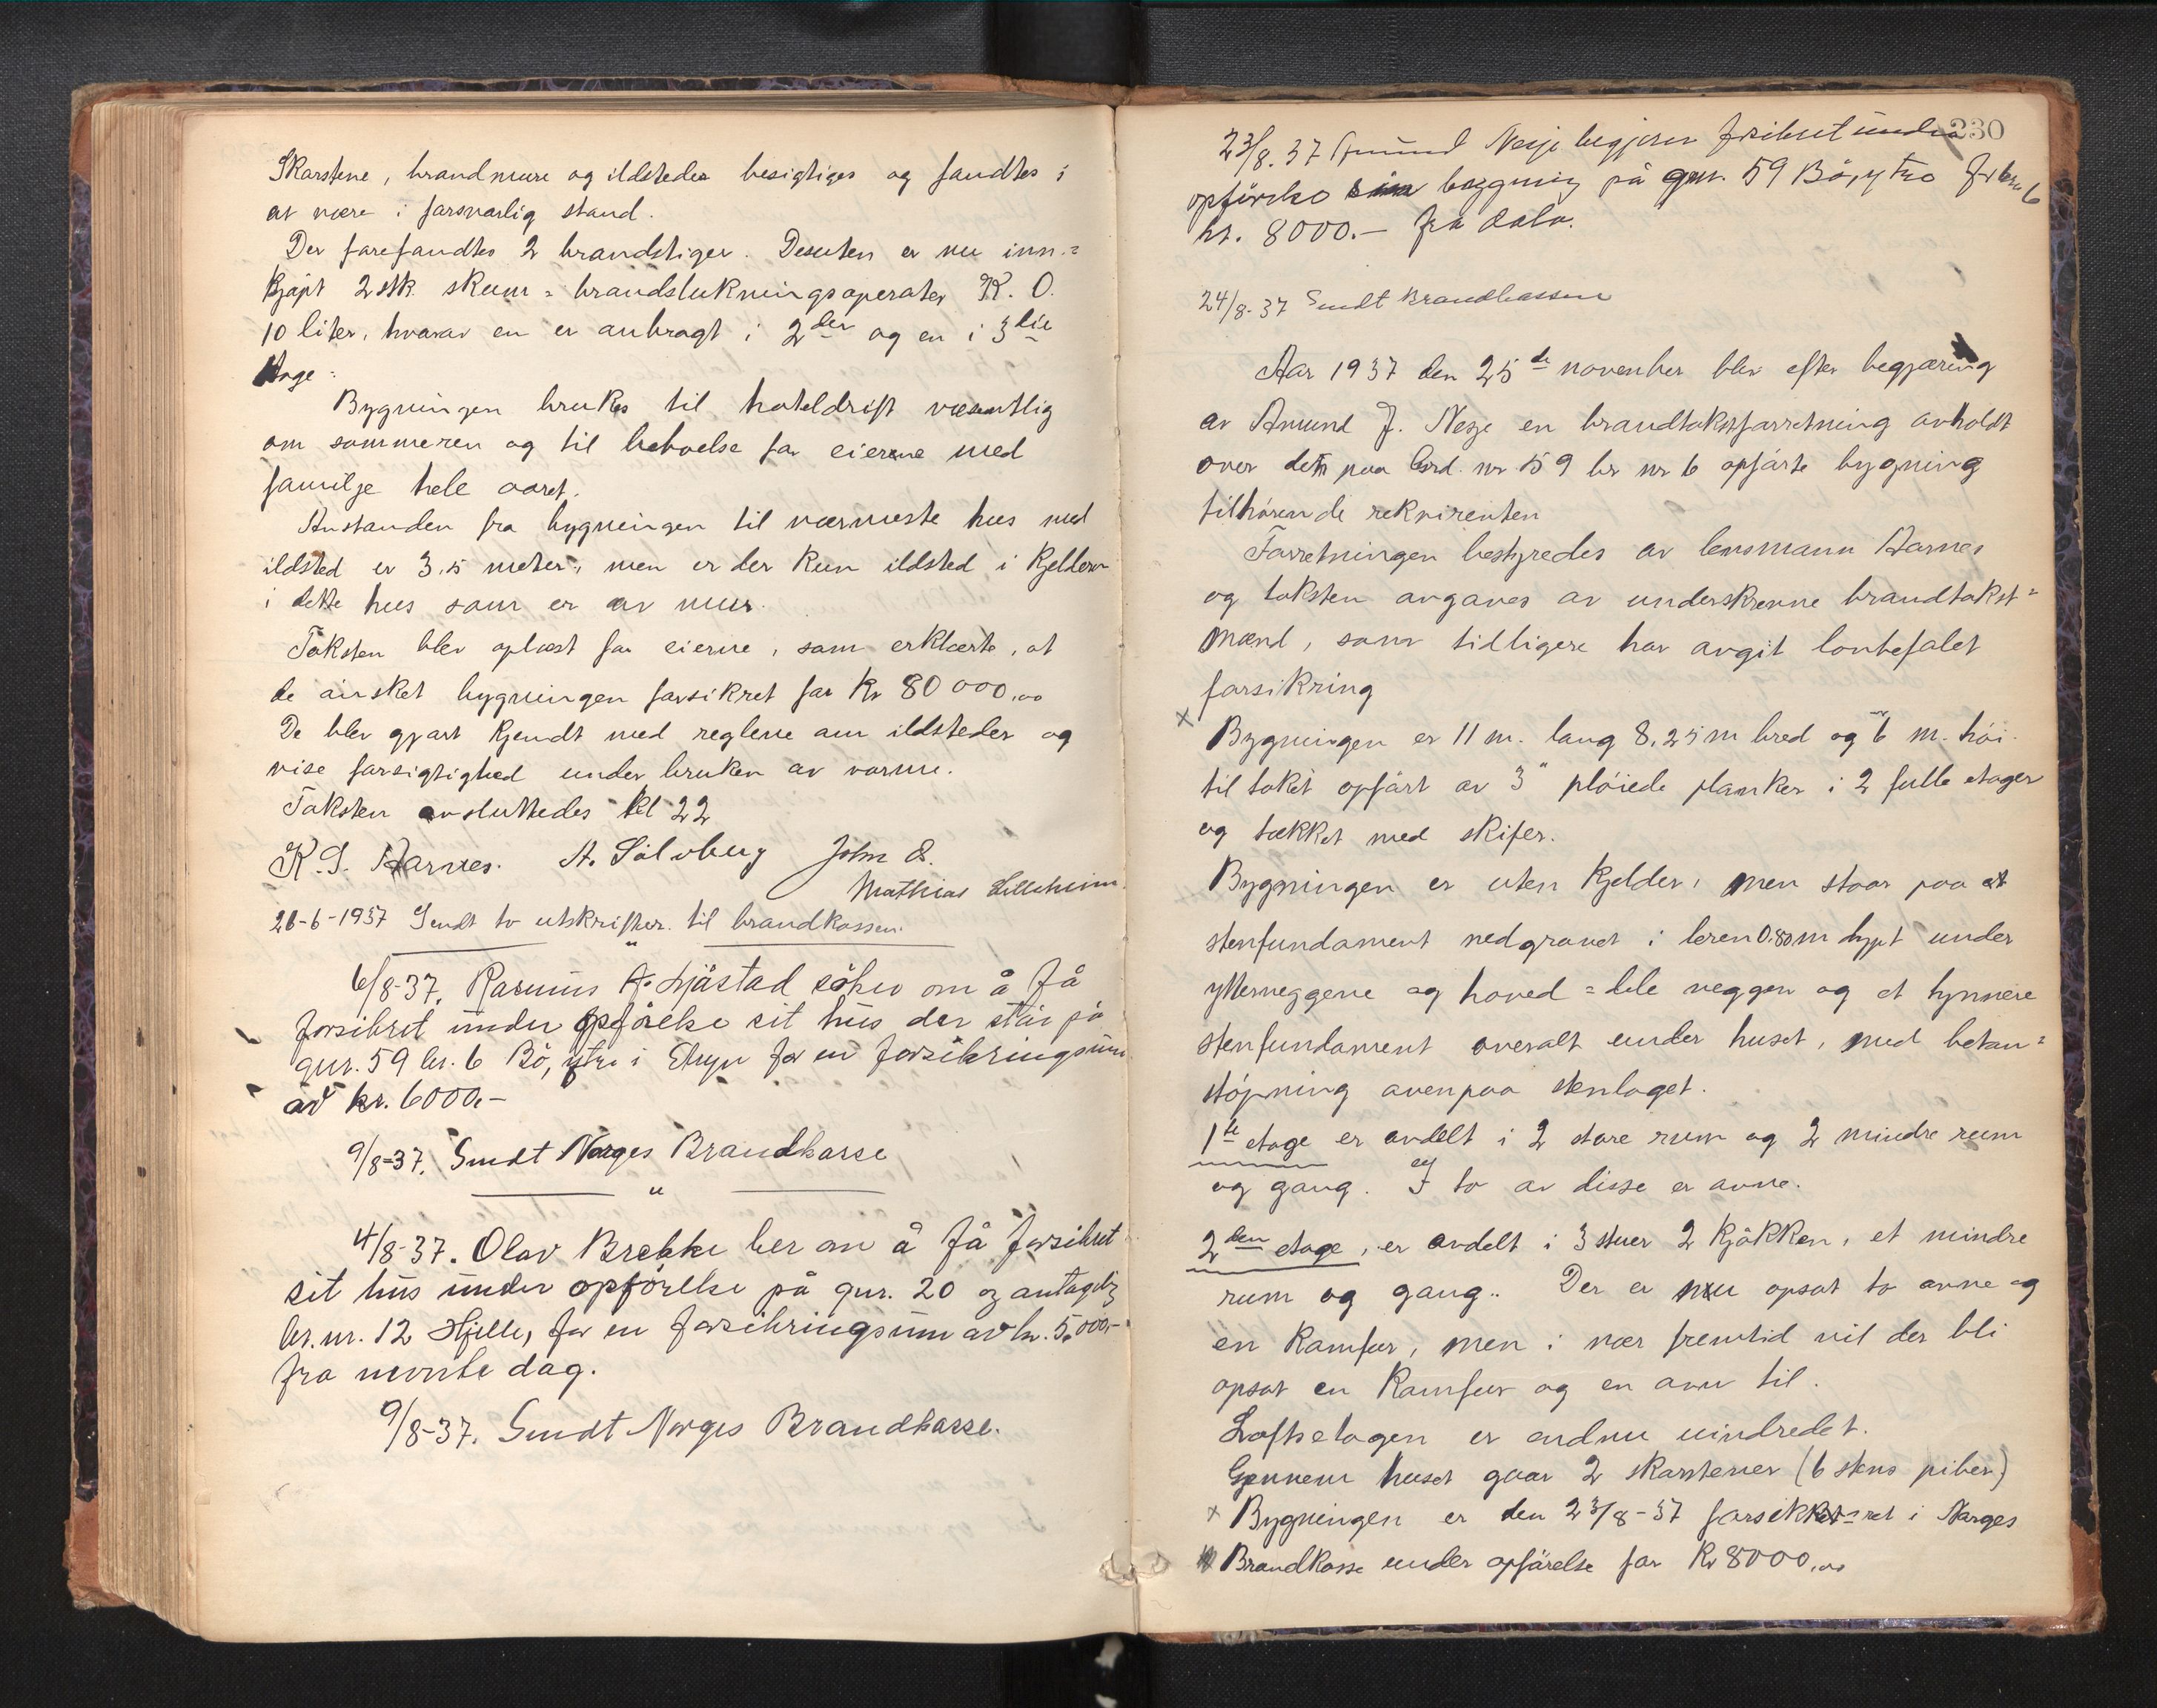 Skorstene, brandmure og ildsteder besigtiges og fandtes i
at være i forsvarlig stand.
Der forefandtes 2 brandstiger. Desuten er nu inn-=
kjøpt 2 stk skum = brandslukningsaperater K. O.
10 liter, hvorav en er anbragt i 2der og en i 3die
etage.
Bygningen brukes til hoteldrift væsentlig
om sommeren og til beboelse for eierne med
familje hele aaret.
Avstanden fra bygningen til nærmeste hus med
ildsted er 3.5 meter, men er der kun ildsted i kjelderen
i dette hus som er av mur.
Taksten blev oplæst for eierne, som erklærte, at
de ønsket bygningen forsikret for Kr 80 000,00
De blev gjort kjendt med reglene om ildsteder og
vise forsigtighed under bruken av varme.
Taksten avsluttedes kl 22
K. J. Aarnes. A. Sølvberg John O.
Mathias Lilleheim.
26-6-1937 Sendt to utskrifter til brandkassen.
"
6/8-37. Rasmus A. Mjåstad søker om å få
forsikret under opførelse sit hus der står på
gnr. 59 br. 6 Bø, ytre i Stryn for en forsikringsum
av kr. 6000.-
9/8-37. Sendt Norges Brandkasse
"
4/8-37. Olav Brekke ber om å få forsikret
sit hus under opførelse på gnr. 20 og antagelig
br. nr. 12 Hjelle, for en forsikringsum av kr. 5.000,-
fra nevnte dag.
9/8-37. Sendt Norges Brandkasse.
230
23/8. 37 Amund Nesje begjærer forsikret under
opførelse sin bygning på gnr. 59 Bø, ytre for brn 6
kr. 8000.- fra dato.
24/8-37 Sendt Brandkassen
Aar 1937 den 25de november blev efter begjæring
av Amund J. Nesje en brandtakstforretning avholdt
over den paa Gård. nr 59 br nr 6 opførte bygning
tilhørende rekvirenten
Forretningen bestyredes av lensmann Aarnes
og taksten avgaves av underskrevne brandtakst=
mænd, som tidligere har avgit lovbefalet
forsikring
x Bygningen er 11 m. lang 8,25 m bred og 6 m. høi
til taket opført av 3" pløiede planker i 2 fulle etager
og tækket med skifer.
Bygningen er uten kjelder, men staar paa et
stenfundament nedgravet i leren 0.80 m dypt under
ytterveggene og hoved = dele veggen og et tynnere
stenfundament overalt under huset, med beton=
støpning ovenpaa stenlaget.
1ste etage er avdelt i 2 store rum og 2 mindre rum
og gang. I to av disse er ovne.
2den etage, er avdelt i 3 stuer 2 kjøkken, et mindre
rum og gang.. Der er nu opsat to ovne og
en komfur, men i nær fremtid vil der bli
opsat en komfur og en ovn til.
Loftsetagen er endnu uindredet.
Gjennem huset gaar 2 skorstener (6 stens piber)
x Bygningen er den 23/8-37 forsikret i Norges
Brandkasse under opførelse for Kr 8000,00